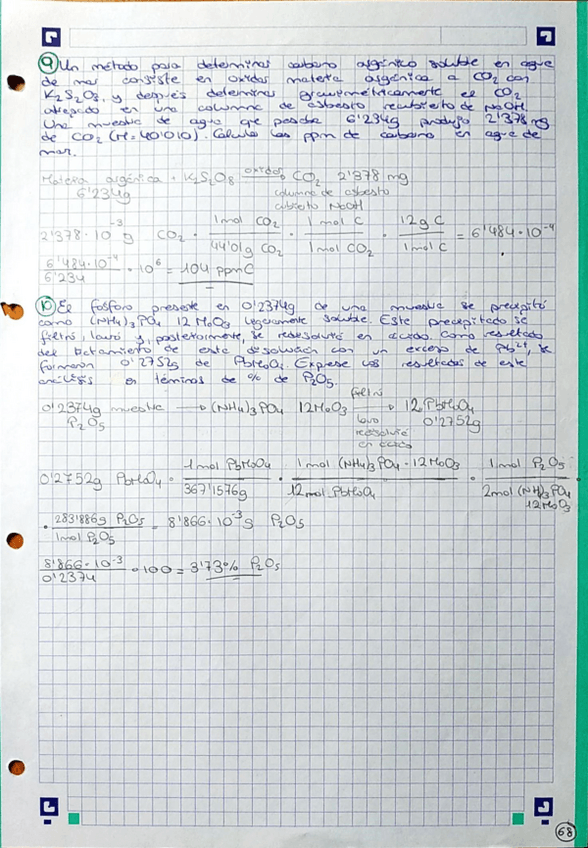 9 Un método para determinar carbono orgánico soluble en agua
de mar consiste en oxidar materia orgánica a CO2 con
K2S2O8, y después determinar gravimétricamente el CO2
atrapado en una columna de asbesto recubierto de NaOH.
Una muestra de agua que pesaba 6'234g produjo 2'378 mg
de CO2 (M= 40'010). Calcula las ppm de carbono en agua de
mar.
Materia orgánica + K2S2O8 oxidar CO2 2'378 mg
6'234g columna de asbesto
cubierto NaOH
2'378·10-3 g CO2 · 1mol CO2 / 44'01g CO2 · 1mol C / 1mol CO2 · 12g C / 1mol C = 6'484·10-4
6'484·10-4 / 6'234 · 10^6 = 104 ppm C
10 El fósforo presente en 0'2374g de una muestra se precipitó
como (NH4)3PO4 12MoO3 ligeramente soluble. Este precipitado se
filtró, lavó y, posteriormente, se redisolvió en ácido. Como resultado
del tratamiento de esta disolución con un exceso de Pb2+, se
formaron 0'2752g de PbMoO4. Exprese los resultados de este
análisis en términos de % de P2O5.
filtró
0'2374g muestra → (NH4)3PO4 12MoO3 → 12 PbMoO4
P2O5 lavó 0'2752g
redisolvió
en ácido
0'2752g PbMoO4 · 1mol PbMoO4 / 367'1576g · 1mol (NH4)3PO4·12MoO3 / 12mol PbMoO4 · 1mol P2O5 / 2mol (NH4)3PO4 12MoO3
· 283'886g P2O5 / 1mol P2O5 = 8'866·10-3g P2O5
8'866·10-3 / 0'2374 · 100 = 3'73% P2O5
68